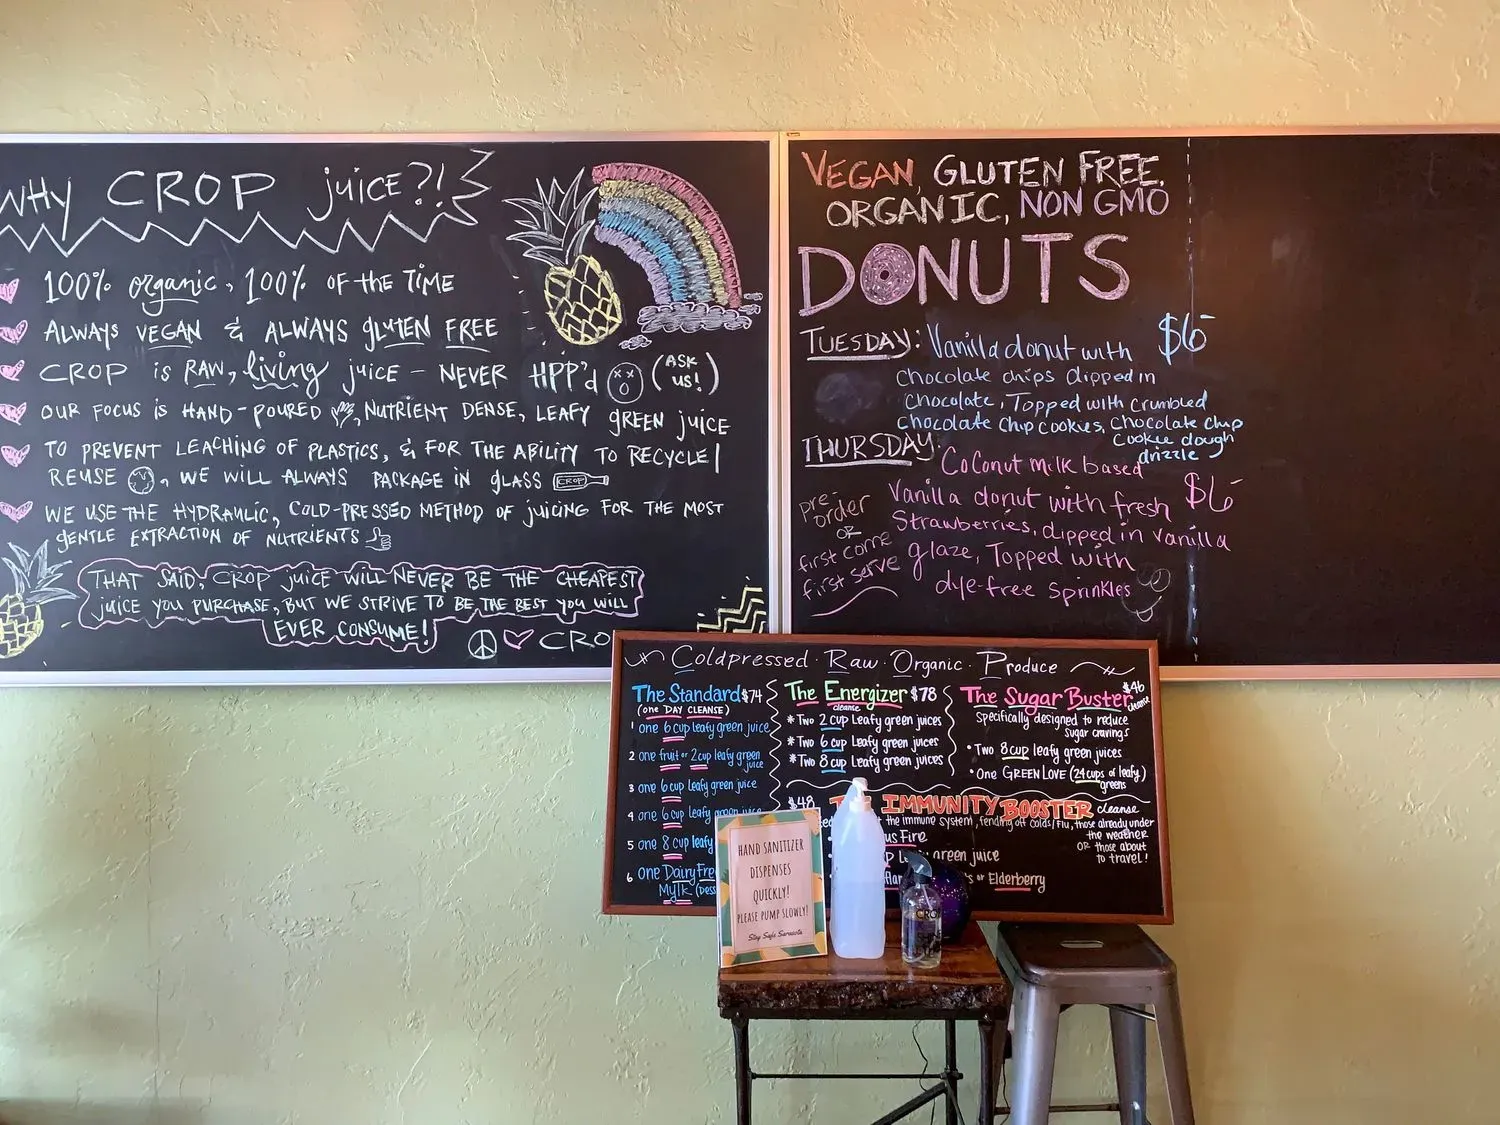 WHY CROP juice?!
100% organic, 100% OF the TIME
ALWAYS VEGAN & ALWAYS gLUTEN FREE
CROP is RAW, living juice - NEVER HPP'd (ASK US!)
OUR FOCUS IS HAND-POURED, NUTRIENT DENSE, LEAFY gREEN juice
TO PREVENT LEACHING OF PLASTICS, & FOR THE ABILITY TO RECYCLE/
REUSE, WE WILL ALWAYS PACKAGE IN gLASS CROP
WE USE THE HYDRAULIC, COLD-PRESSED METHOD OF juicing FOR THE MOST
gENTLE EXTRACTION OF NUTRIENTS
THAT SAID, CROP juice WILL NEVER BE THE CHEAPEST
juice you PURCHASE, BUT WE STRIVE TO BE THE BEST you WILL
EVER CONSUME!
CRO
VEGAN, GLUTEN FREE,
ORGANIC, NON GMO
DONUTS
TUESDAY: Vanilla donut with $6
Chocolate chips dipped in
Chocolate, Topped with crumbled
chocolate chip cookies, chocolate chip
cookie dough
drizzle
THURSDAY: Coconut milk based
Vanilla donut with fresh $6
Strawberries, dipped in vanilla
glaze, Topped with
dye-free sprinkles
pre-
order
or
first come
first serve
Coldpressed · Raw · Organic · Produce
The Standard $74
(one DAY CLEANSE)
1 one 6 cup leafy green juice
2 one fruit or 2 cup leafy green
juice
3 one 6 cup leafy green juice
4 one 6 cup leafy green juice
5 one 8 cup leafy
6 one Dairy Fre
Mylk (Dess
The Energizer $78
cleanse
* Two 2 cup Leafy green juices
* Two 6 cup Leafy green juices
* Two 8 cup Leafy green juices
The Sugar Buster $46
cleanse
Specifically designed to reduce
sugar cravings
• Two 8 cup leafy green juices
• One GREEN LOVE (24 cups of leafy)
greens
$48 IMMUNITY BOOSTER cleanse
the immune system, fending off colds/flu, those already under
the weather
OR those about
to travel!
us Fire
green juice
or Elderberry
HAND SANITIZER
DISPENSES
QUICKLY!
PLEASE PUMP SLOWLY!
Stay Safe Sarasota
CRO